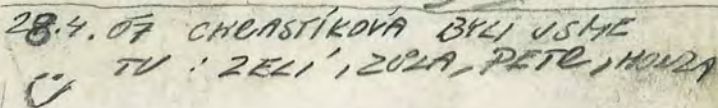 28.4.07 CHRASTÍKOVÁ BYLI JSME
TU : ZELÍ, ZUZLA, PETR, HONZA